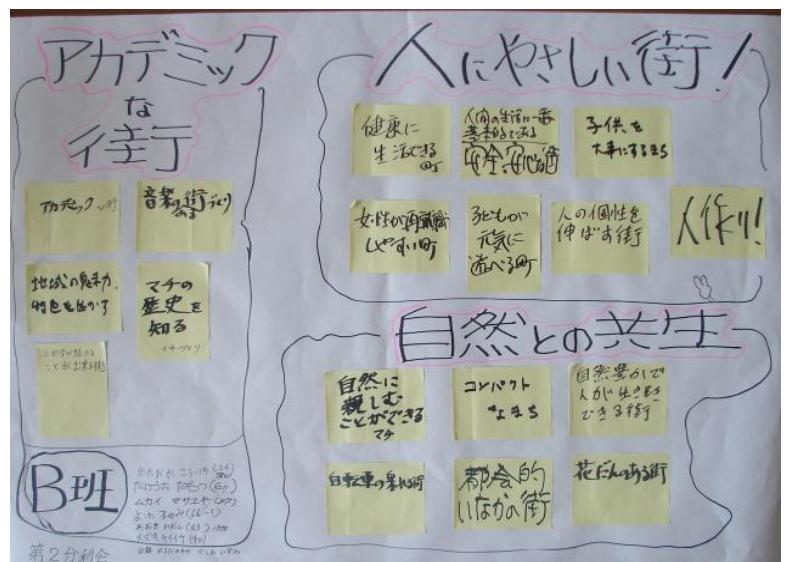 アカデミック
な
街
アカデミックな町
音楽の街づくり
ある
地域の魅力、
特色を生かす
マチの
歴史を
知る
マチづくり
ことが出来る街
B班
第2分科会
人にやさしい街！
健康に
生活できる
町
人間の生活に一番
基本的である
安全、安心な道
子供を
大事にするまち
女性が再就職
しやすい町
子どもが
元気に
遊べる町
人の個性を
伸ばす街
人作り！
自然との共生
自然に
親しむ
ことができる
マチ
コンパクト
なまち
自然豊かで
人が生き生き
できる街
自転車の乗れる街
都会的
いなかの街
花だんのある街